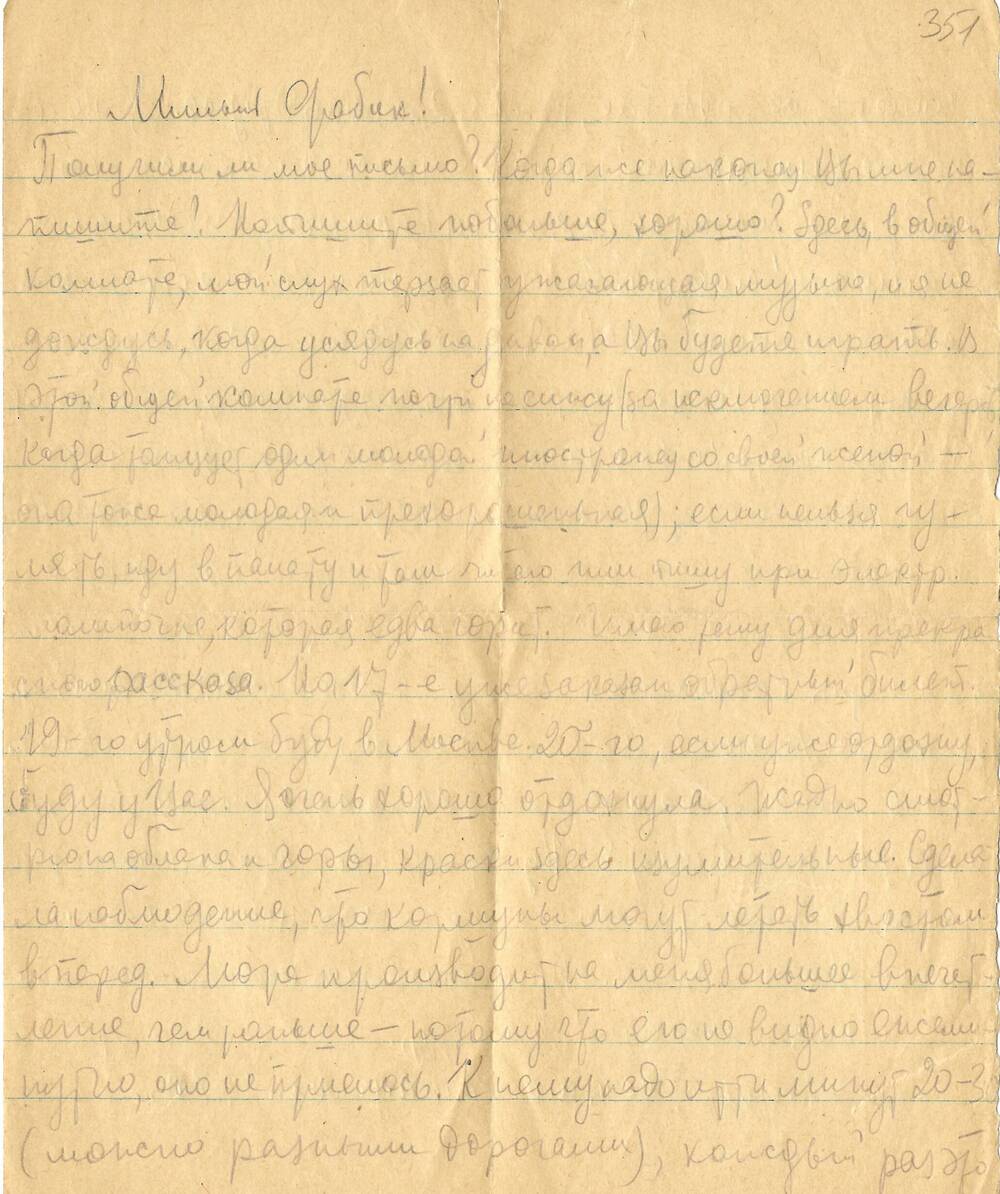 351
Милый Фабих!
Получили ли мое письмо? Когда же наконец Цы мне на-
пишите! Напишите побольше, хорошо? Здесь, в общей
комнате, мой слух терзает ужасающая музыка, и я не
дождусь, когда усядусь на диван, а Цы будете играть. В
этой общей комнате почти не сижу (за исключением вечеров
когда танцует один молодой иностранец со своей женой —
она тоже молодая и прехорошенькая); если нельзя гу-
лять, иду в палату и там читаю или пишу при электр.
лампочке, которая едва горит. Имею тему для прекра
сного рассказа. На 17-е уже заказан обратный билет.
19-го утром буду в Москве. 20-го, если уже отдохну,
буду у Цас. Я очень хорошо отдохнула, жадно смот-
рю на облака и горы, краски здесь изумительные. Сдела
ла наблюдение, что кормуны могут летать хвостом
вперед. Море производит на меня большее впечат-
ление, чем раньше — потому что его не видно ежеми-
нутно, оно не приелось. К нему надо итти минут 20-3
(можно разными дорогами), каждый раз это